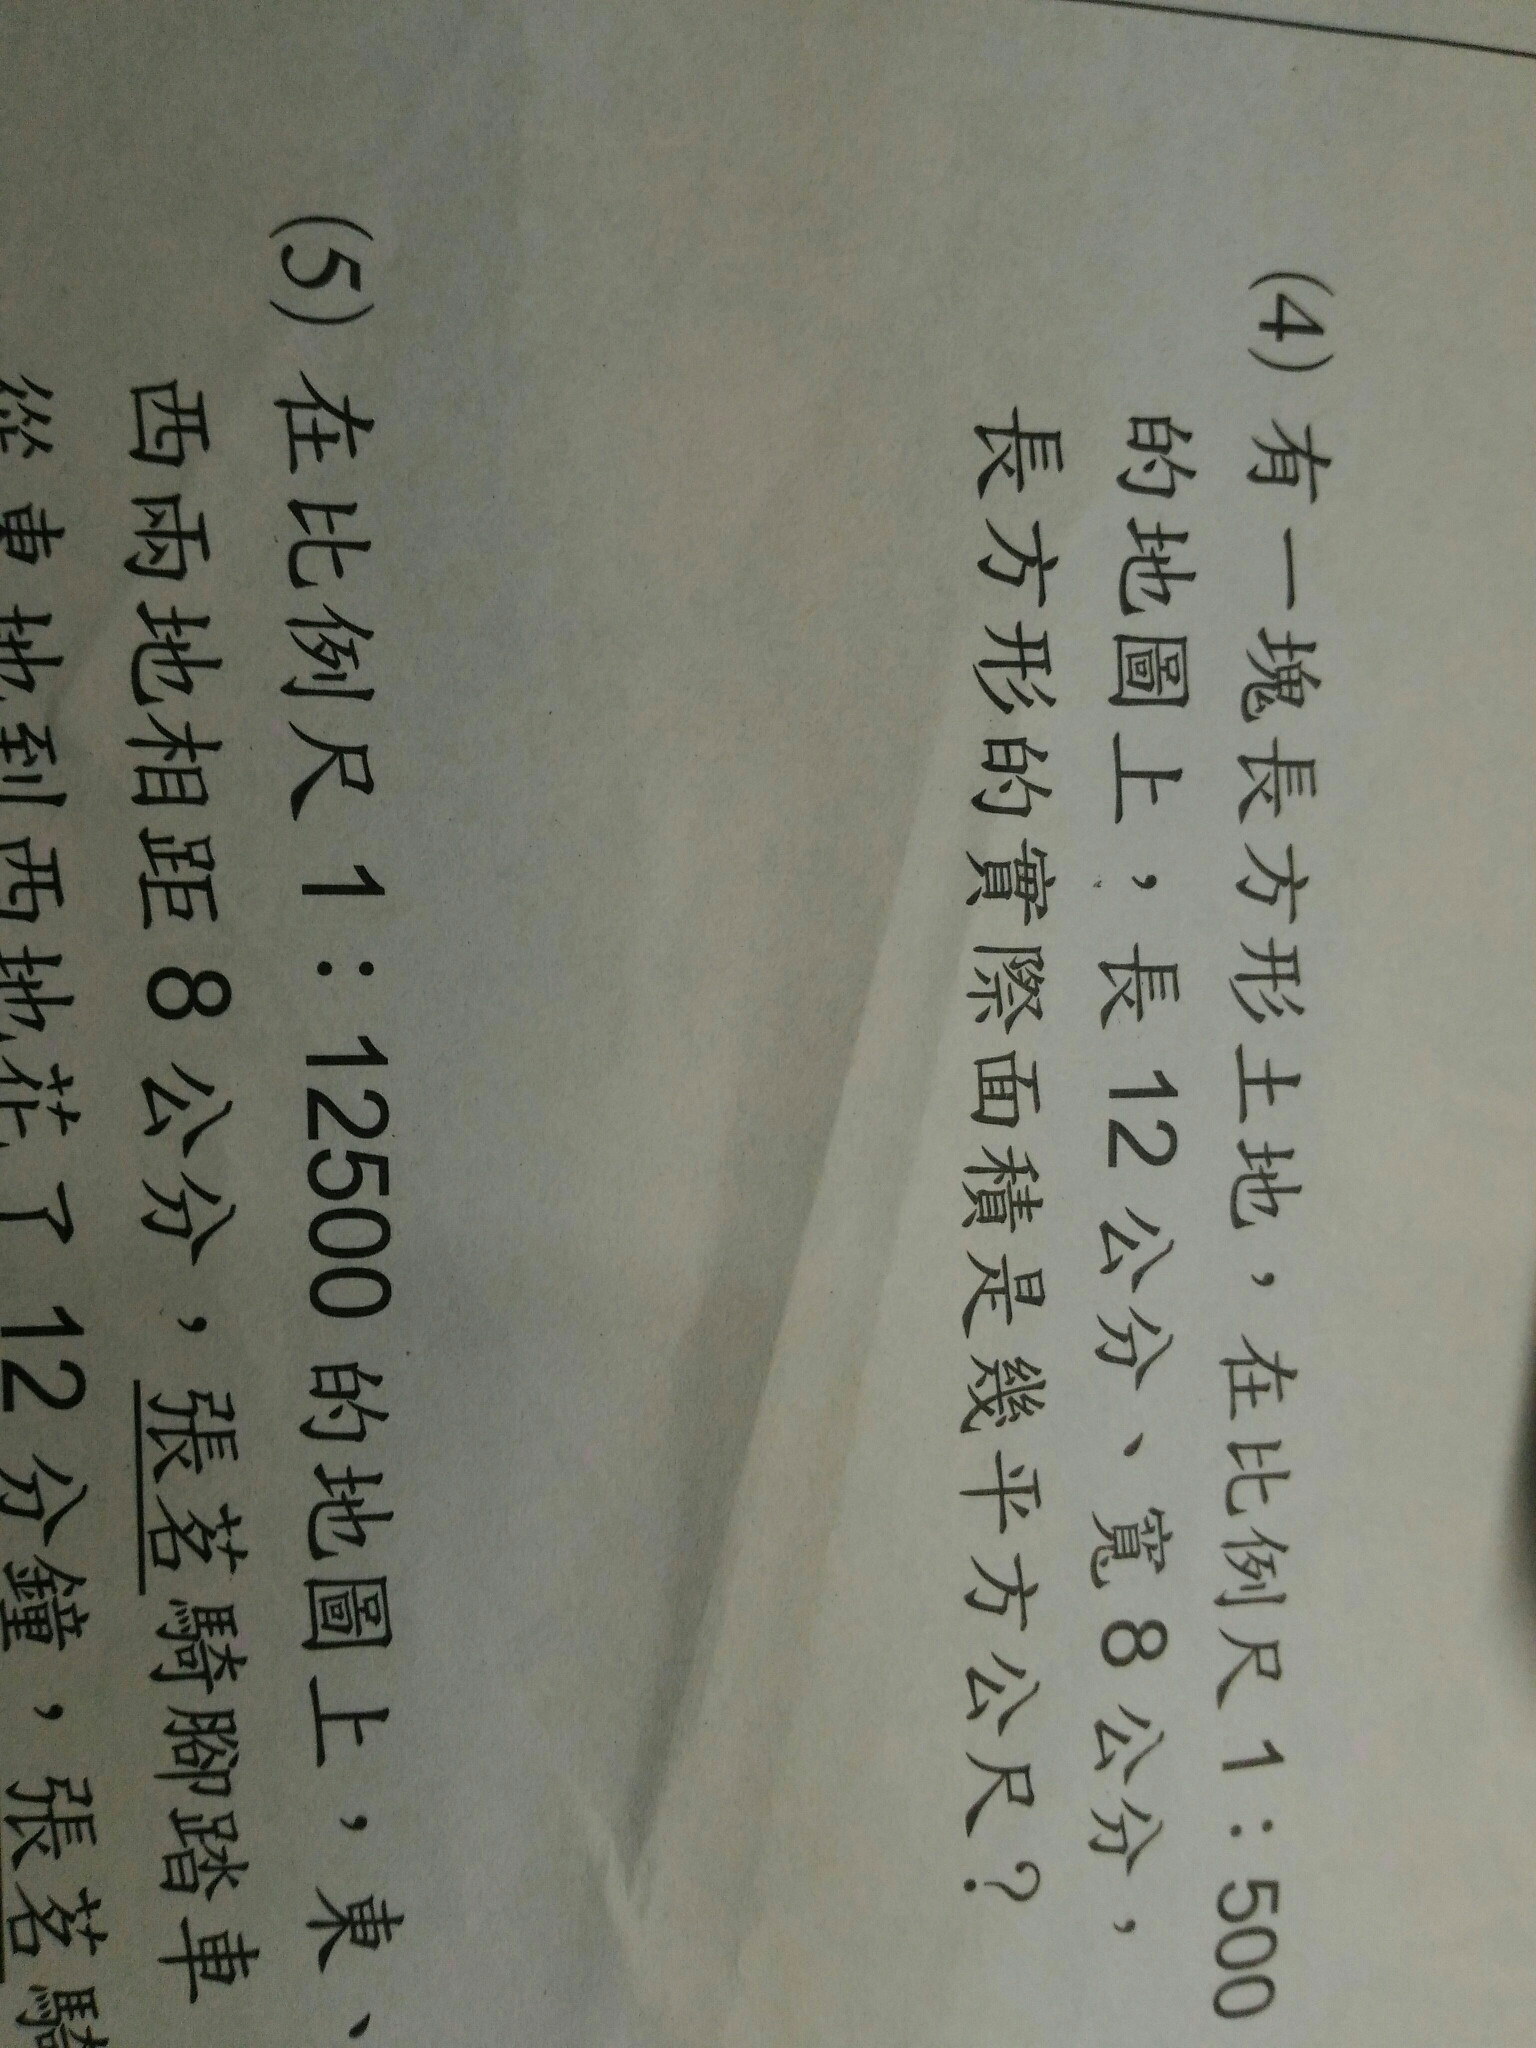 (4) 有一塊長方形土地，在比例尺 1：500
的地圖上，長 12 公分、寬 8 公分，
長方形的實際面積是幾平方公尺？
(5) 在比例尺 1：12500 的地圖上，東、
西兩地相距 8 公分，張茗騎腳踏車
從東地到西地花了 12 分鐘，張茗騎